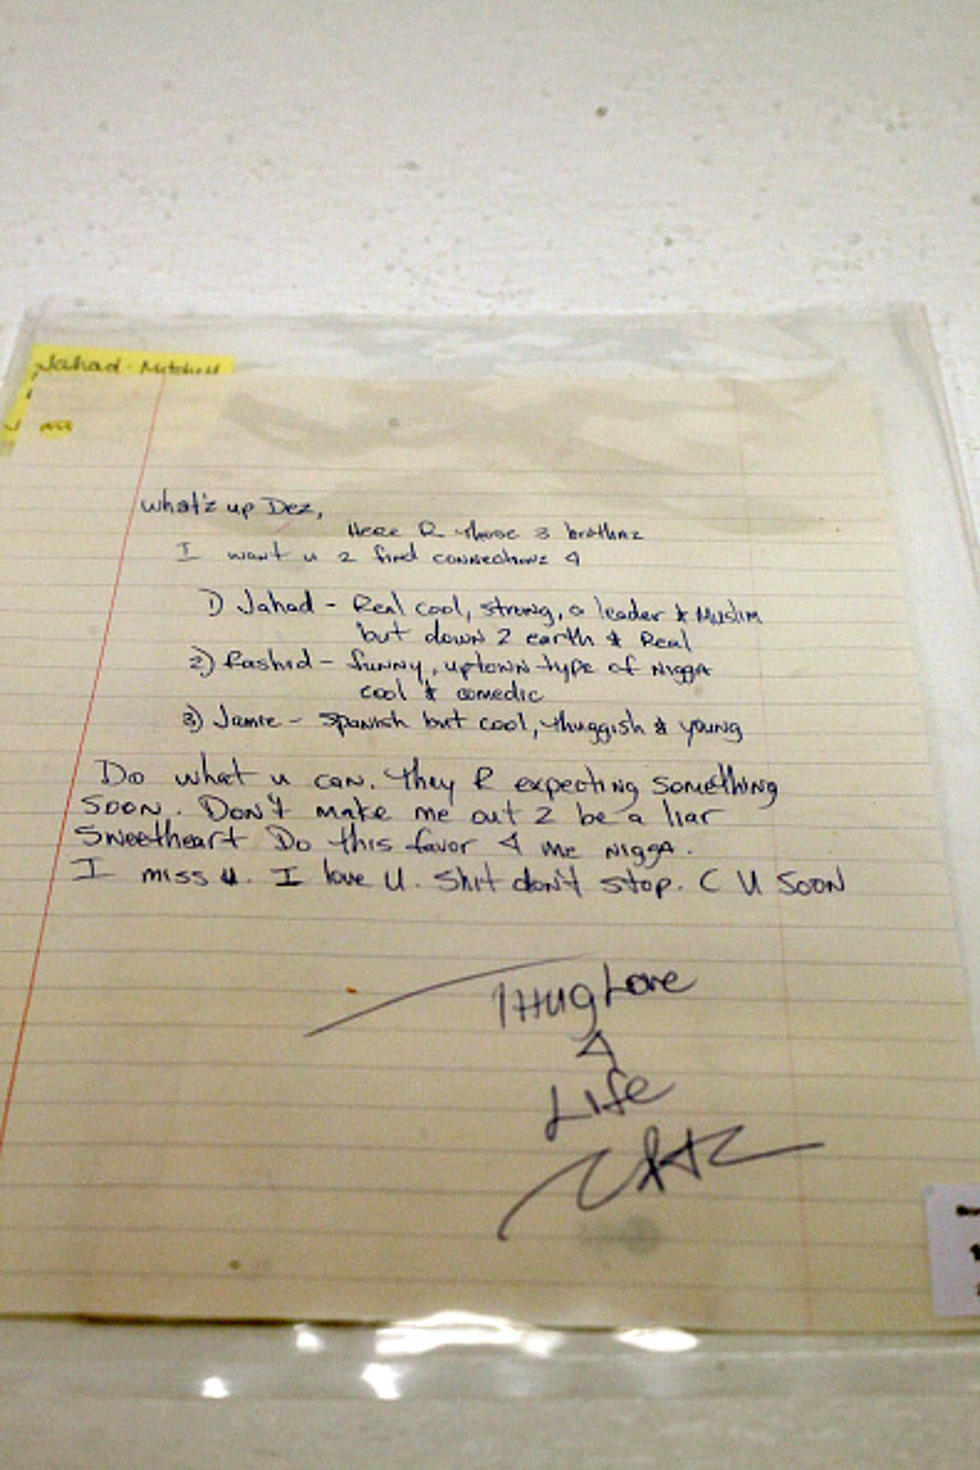 Jahad - Mitchell
What'z up Dez,
Here R those 3 brothaz
I want u 2 find connectionz 4
1) Jahad - Real cool, strong, a leader & Muslim
but down 2 earth & Real
2) Rashid - funny, uptown type of Nigga
cool & comedic
3) Jamie - Spanish but cool, thuggish & young
Do what u can. They R expecting something
soon. Don't make me out 2 be a liar
Sweetheart Do this favor 4 me Nigga.
I miss u. I love U. Shit don't stop. C U SOON
Thug Love
4
Life